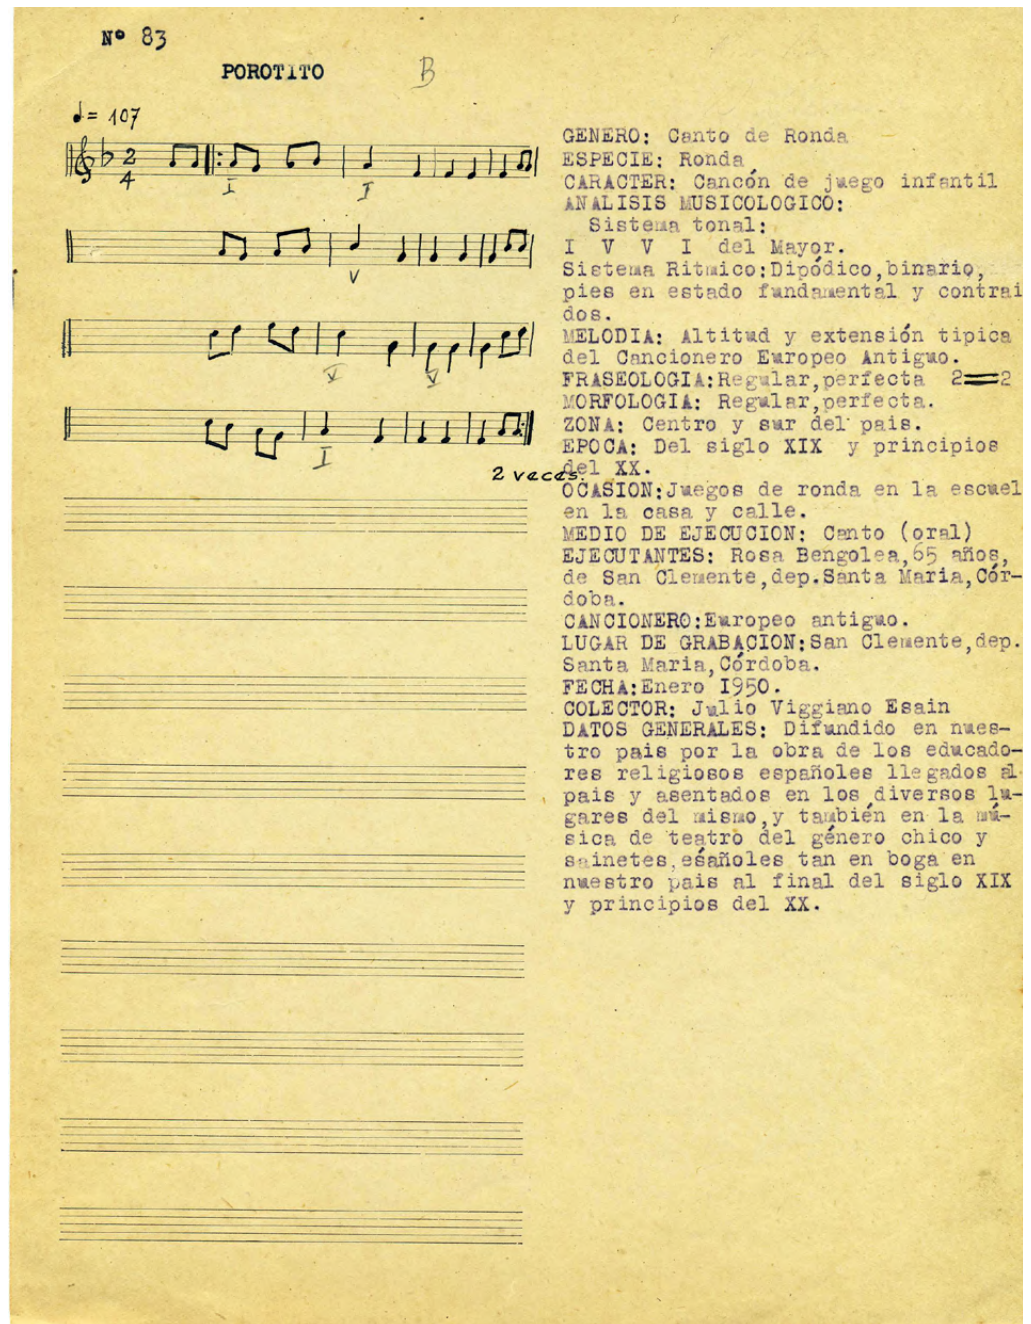 Nº 83
POROTITO B
♩= 107
2
4
I I
V
V V
I
2 veces.
GENERO: Canto de Ronda
ESPECIE: Ronda
CARACTER: Cancón de juego infantil
ANALISIS MUSICOLOGICO:
Sistema tonal:
I V V I del Mayor.
Sistema Ritmico:Dipódico,binario,
pies en estado fundamental y contrai
dos.
MELODIA: Altitud y extensión tipica
del Cancionero Europeo Antiguo.
FRASEOLOGIA:Regular,perfecta 2==2
MORFOLOGIA: Regular,perfecta.
ZONA: Centro y sur del pais.
EPOCA: Del siglo XIX y principios
del XX.
OCASION:Juegos de ronda en la escuel
en la casa y calle.
MEDIO DE EJECUCION: Canto (oral)
EJECUTANTES: Rosa Bengolea,65 años,
de San Clemente,dep.Santa Maria,Cór-
doba.
CANCIONERO:Europeo antiguo.
LUGAR DE GRABACION:San Clemente,dep.
Santa Maria,Córdoba.
FECHA:Enero I950.
COLECTOR: Julio Viggiano Esain
DATOS GENERALES: Difundido en nues-
tro pais por la obra de los educado-
res religiosos españoles llegados al
pais y asentados en los diversos lu-
gares del mismo,y también en la mú-
sica de teatro del género chico y
sainetes,esañoles tan en boga en
nuestro pais al final del siglo XIX
y principios del XX.